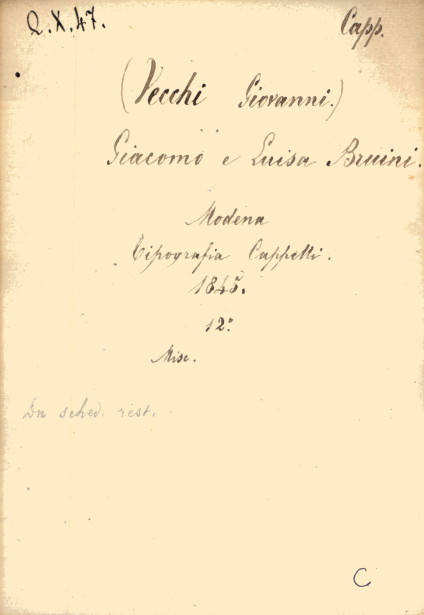 Q.X.47. Capp.
(Vecchi Giovanni.)
Giacomo e Luisa Bruini.
Modena
Tipografia Cappelli.
1845.
12.°
Misc.
In sched. rest.
C